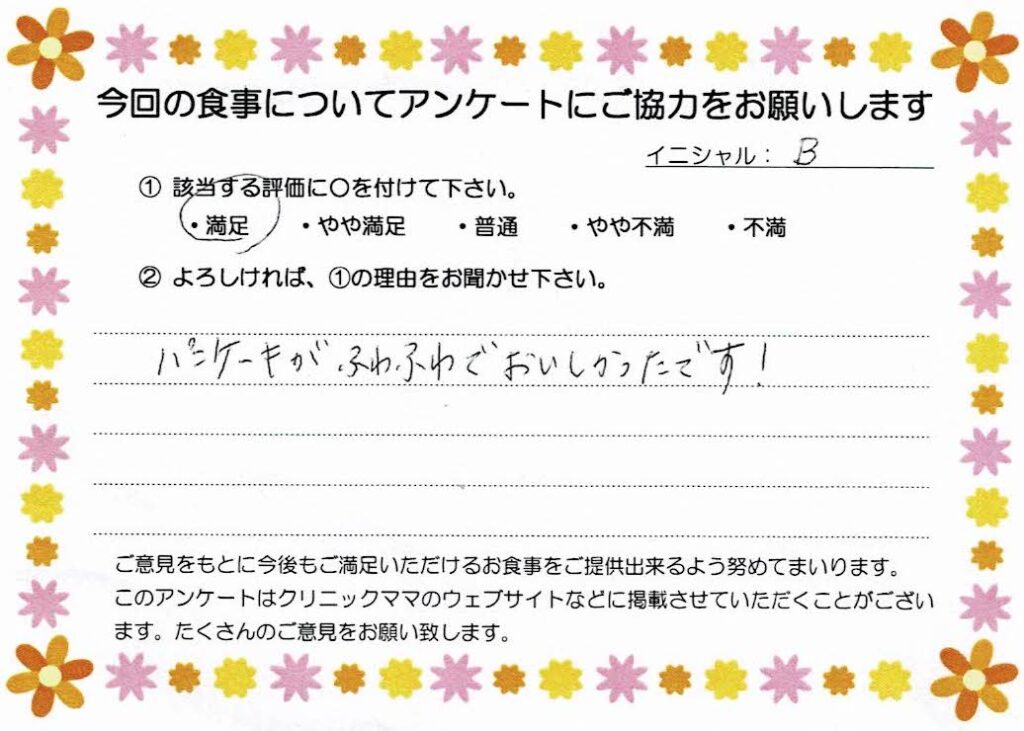 今回の食事についてアンケートにご協力をお願いします
イニシャル： B
① 該当する評価に〇を付けて下さい。
・満足 ・やや満足 ・普通 ・やや不満 ・不満
② よろしければ、①の理由をお聞かせ下さい。
パンケーキがふわふわでおいしかったです！
ご意見をもとに今後もご満足いただけるお食事をご提供出来るよう努めてまいります。
このアンケートはクリニックママのウェブサイトなどに掲載させていただくことがござい
ます。たくさんのご意見をお願い致します。